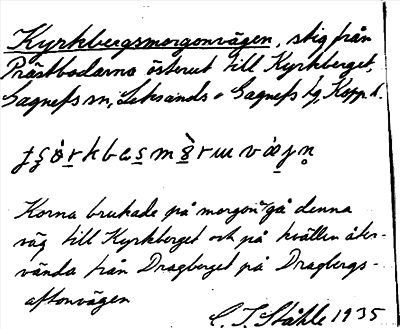 Kyrkbergsmorgonvägen, stig från
Prästbodarna österut till Kyrkberget,
Gagnefs sn, Leksands o Gagnefs tg, Kopp. l.
Korna brukade på morgon gå denna
väg till Kyrkberget och på kvällen åter-
vända från Dragberget på Dragbergs-
aftonvägen
C. I. Ståhle 1935